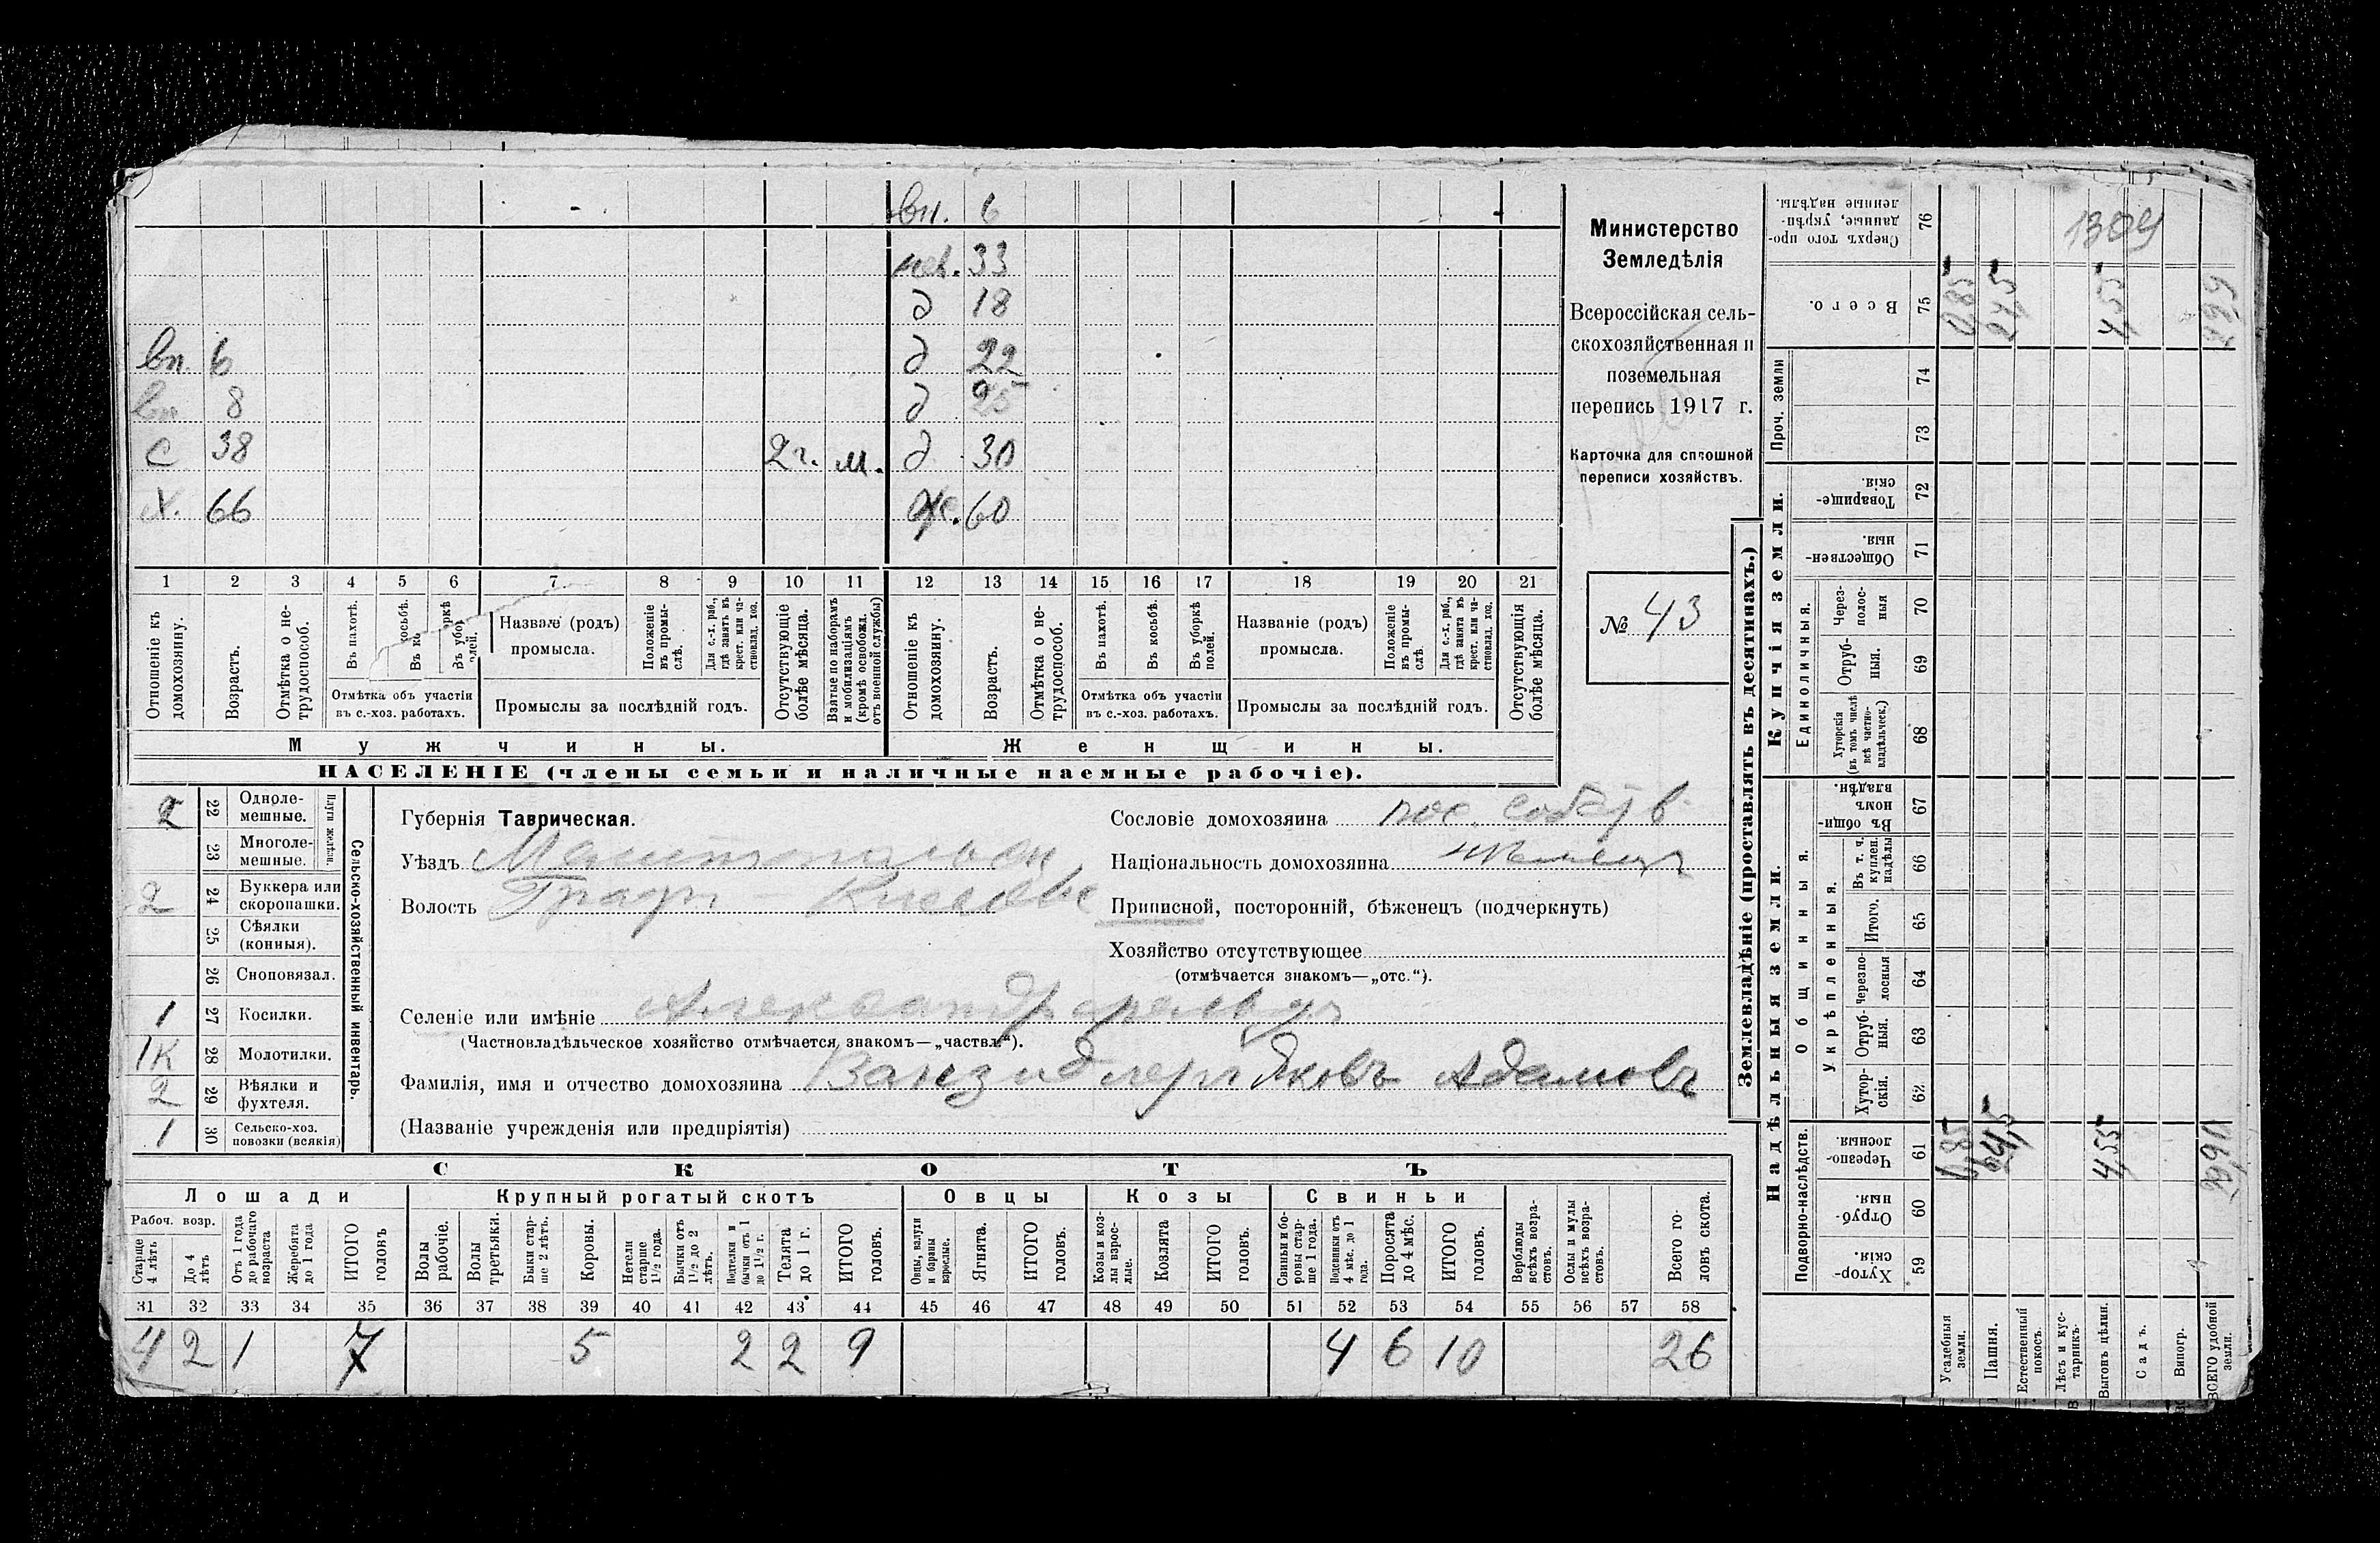 вн. 6
нев. 33
д 18
вн. 6 д 22
вн 8 д 25
с 38 2 г. м. д 30
х. 66 ж. 60
1 2 3 4 5 6 7 8 9 10 11 12 13 14 15 16 17 18 19 20 21
Отношеніе къ домохозяину.
Возрастъ.
Отмѣтка о не-трудоспособ.
Въ пахотѣ.
Въ ко осьбѣ.
Въ убор ркѣ полей.
Отмѣтка объ участіи
въ с.-хоз. работахъ.
Названіе (родъ)
промысла.
Положеніе въ промы-слѣ.
Для с.-х. раб., гдѣ занятъ въ крест. или ча-стновлад. хоз.
Промыслы за послѣдній годъ.
Отсутствующіе болѣе мѣсяца.
Взятые по наборамъ и мобилизаціямъ (кромѣ освобожд. отъ военной службы)
Отношеніе къ домохозяину.
Возрастъ.
Отмѣтка о не-трудоспособ.
Въ пахотѣ.
Въ косьбѣ.
Въ уборкѣ полей.
Отмѣтка объ участіи
въ с.-хоз. работахъ.
Названіе (родъ)
промысла.
Положеніе въ промы-слѣ.
Для с.-х. раб., гдѣ занята въ крест. или ча-стновлад. хоз.
Промыслы за послѣдній годъ.
Отсутствующія болѣе мѣсяца.
Мужчины. Женщины.
НАСЕЛЕНІЕ (члены семьи и наличные наемные рабочіе).
Министерство
Земледѣлія
Всероссійская сель-
скохозяйственная и
поземельная
перепись 1917 г.
Карточка для сплошной
переписи хозяйствъ.
№ 43
Сельско-хозяйственный инвентарь.
Плуги желѣзн.
2 22 Одноле-мешные.
23 Многоле-мешные.
2 24 Буккера или скоропашки.
25 Сѣялки (конныя).
26 Сноповязал.
1 27 Косилки.
1К 28 Молотилки.
2 29 Вѣялки и фухтеля.
1 30 Сельско-хоз. повозки (всякія)
Губернія Таврическая.
Уѣздъ Мелитопольск
Волость Граф
Селеніе или имѣніе Александркрон
(Частновладѣльческое хозяйство отмѣчается знакомъ—„частвл.“).
Фамилія, имя и отчество домохозяина Яковъ Адамовъ
(Названіе учрежденія или предпріятія)
Сословіе домохозяина пос. собств.
Національность домохозяина нѣмецъ
Приписной, посторонній, бѣженецъ (подчеркнуть)
Хозяйство отсутствующее
(отмѣчается знакомъ—„отс.“).
СКОТЪ
Лошади Крупный рогатый скотъ Овцы Козы Свиньи
Рабоч. возр.
Старше 4 лѣтъ
До 4 лѣтъ
Отъ 1 года до рабочаго возраста
Жеребята до 1 года
ИТОГО головъ
Волы рабочіе.
Волы третьяки.
Быки стар-ше 2 лѣтъ.
Коровы.
Нетели старше 1½ года.
Бычки отъ 1½ до 2 лѣтъ.
Подтелки и бычки отъ 1 до 1½ г.
Телята до 1 г.
ИТОГО головъ.
Овцы, валухи и бараны взрослые.
Ягнята.
ИТОГО головъ.
Козы и коз-лы взрос-лые.
Козлята
ИТОГО головъ.
Свиньи и бо-ровы стар-ше 1 года.
Подсвинки отъ 4 мѣс. до 1 года.
Поросята до 4 мѣс.
ИТОГО головъ.
Верблюды всѣхъ возра-стовъ.
Ослы и мулы всѣхъ возра-стовъ.
Всего го-ловъ скота.
31 32 33 34 35 36 37 38 39 40 41 42 43 44 45 46 47 48 49 50 51 52 53 54 55 56 57 58
4 2 1 7 5 2 2 9 4 6 10 26
Землевладѣніе (проставлять въ десятинахъ.)
Купчія земли.
Надѣльныя земли.
Проч. земли
Сверхъ того про-данные, укрѣп-ленные надѣлы. 76 1309
Всего. 75 0,85 24,5 4,55
74
73
Товарище-скія. 72
Обществен-ныя. 71
Единоличныя.
Через-полос-ныя 70
Отруб-ныя. 69
Хуторскія (въ томъ числѣ всѣ частно-владѣльческ.) 68
Общинныя.
Въ общи-номъ владѣн. 67
Укрѣпленныя.
Въ т. ч. куплен. надѣлы 66
Итого. 65
Черезпо-лосныя 64
Отруб-ныя. 63
Хутор-скія. 62
Подворно-наслѣдств.
Черезпо-лосныя. 61 0,85 24,5 4,55
Отруб-ныя. 60
Хутор-скія. 59
Усадебныя земли.
Пашня.
Естественный покосъ.
Лѣсъ и кус-тарникъ.
Выгонъ цѣлин.
Садъ.
Виногр.
ВСЕГО удобной земли.